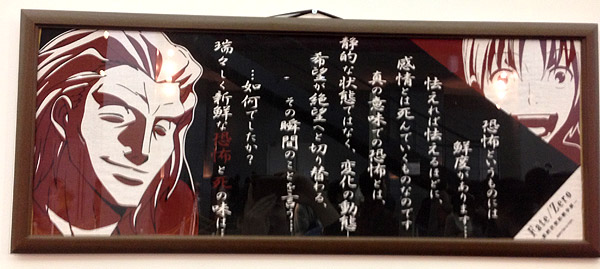 恐怖というものには
鮮度があります…
怯えれば怯えるほどに、
感情とは死んでいくものなのです
真の意味での恐怖とは、
静的な状態ではなく、変化の動態―
希望が絶望へと切り替わる、
その瞬間のことを言う…
…如何でしたか?
瑞々しく新鮮な恐怖と死の味は
Fate/Zero